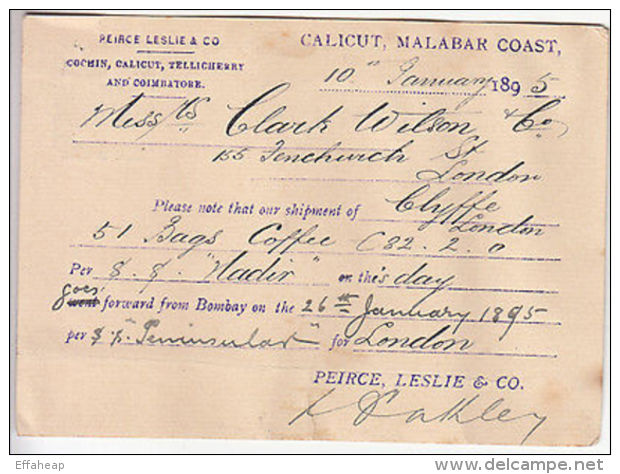 PEIRCE LESLIE & CO
COCHIN, CALICUT, TELLICHERRY
AND COIMBATORE.
CALICUT, MALABAR COAST,
10" January 1895
Mess rs Clark Wilson & Co
155 Fenchurch St
London
Please note that our shipment of Clyffe
London
51 Bags Coffee C 82. 2. 0
Per S. S. "Nadir" on the's day
goes
went forward from Bombay on the 26th January 1895
per S.S. "Peninsular" for London
PEIRCE, LESLIE & CO.
Oakley
Effaheap
delcampe.net